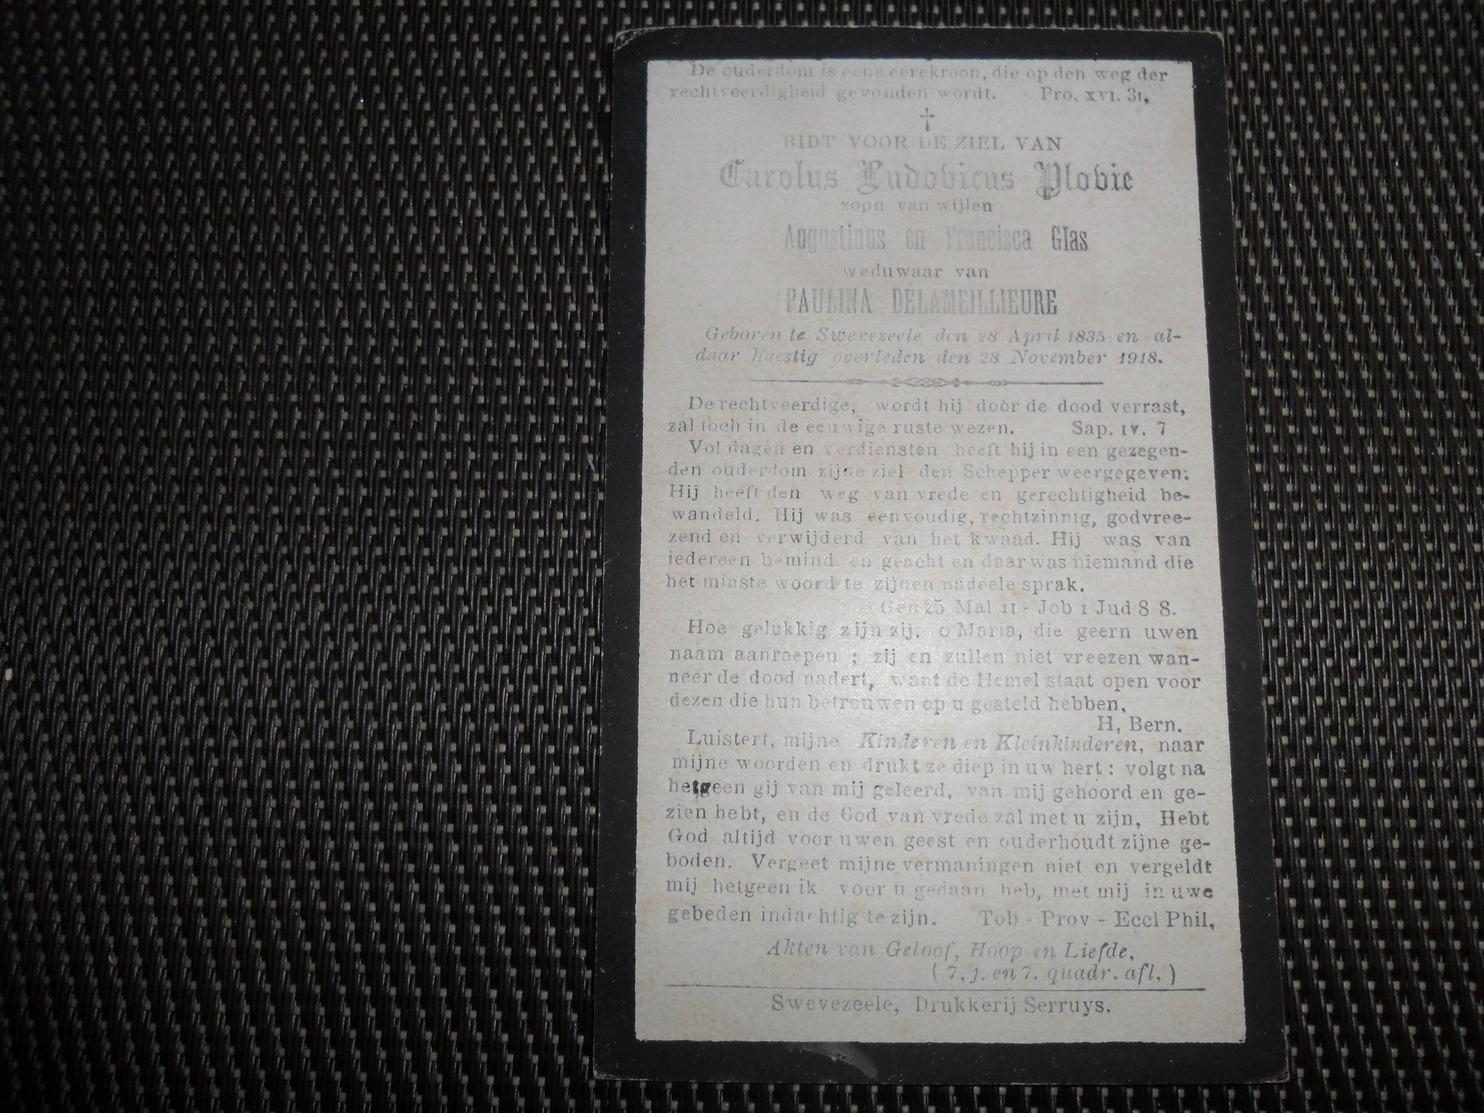 De ouderdom is eene eerekroon, die op den weg der
rechtveerdigheid gevonden wordt. Pro. XVI. 31,
†
BIDT VOOR DE ZIEL VAN
Carolus Ludovicus Plovie
zoon van wijlen
Augustinus en Francisca Glas
weduwaar van
PAULINA DELAMEILLIEURE
Geboren te Swevezeele den 28 April 1835 en al-
daar haestig overleden den 28 November 1918.
De rechtveerdige, wordt hij door de dood verrast,
zal toch in de eeuwige ruste wezen. Sap. IV. 7
Vol dagen en verdiensten heeft hij in een gezegen-
den ouderdom zijne ziel den Schepper weergegeven.
Hij heeft den weg van vrede en gerechtigheid be-
wandeld. Hij was eenvoudig, rechtzinnig, godvree-
zend en verwijderd van het kwaad. Hij was van
iedereen bemind en geacht en daar was niemand die
het minste woord te zijnen nadeele sprak.
Gen 25 Mal II - Job I Jud 8 8.
Hoe gelukkig zijn zij, o Maria, die geern uwen
naam aanroepen ; zij en zullen niet vreezen wan-
neer de dood nadert, want de Hemel staat open voor
dezen die hun betrouwen op u gesteld hebben,
H, Bern.
Luistert, mijne Kinderen en Kleinkinderen, naar
mijne woorden en drukt ze diep in uw hert : volgt na
hetgeen gij van mij geleerd, van mij gehoord en ge-
zien hebt, en de God van vrede zal met u zijn, Hebt
God altijd voor uwen geest en ouderhoudt zijne ge-
boden. Vergeet mijne vermaningen niet en vergeldt
mij hetgeen ik voor u gedaan heb, met mij in uwe
gebeden indachtig te zijn. Tob - Prov - Eccl Phil,
Akten van Geloof, Hoop en Liefde,
( 7, j. en 7. quadr. afl, )
Swevezeele, Drukkerij Serruys.